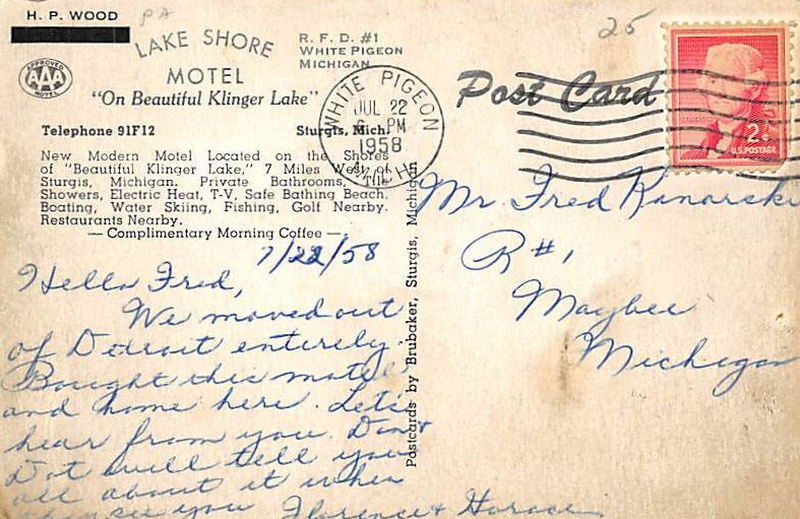 H. P. WOOD
PA
25
LAKE SHORE
MOTEL
R. F. D. #1
WHITE PIGEON
MICHIGAN
APPROVED
AAA
MOTEL
"On Beautiful Klinger Lake"
Telephone 91F12 Sturgis, Mich.
New Modern Motel Located on the Shores
of "Beautiful Klinger Lake," 7 Miles West of
Sturgis, Michigan. Private Bathrooms, Tile
Showers, Electric Heat, T-V, Safe Bathing Beach.
Boating, Water Skiing, Fishing, Golf Nearby.
Restaurants Nearby.
— Complimentary Morning Coffee —
WHITE PIGEON
JUL 22
6 PM
1958
MICH.
Post Card
2¢
U.S. POSTAGE
7/22/58
Hello Fred,
We moved out
of Detroit entirely.
Bought this motel
and home here. Let's
hear from you. Don &
Dot will tell you
all about it when
they see you Florence & Horace
Postcards by Brubaker, Sturgis, Michigan
Mr. Fred Kanarski
R #1
Maybee
Michigan